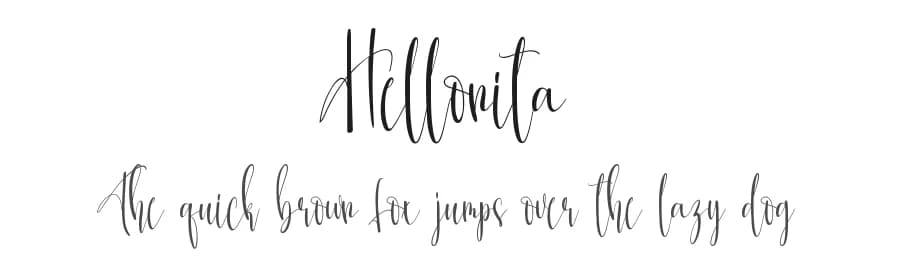 Hellonita
The quick brown fox jumps over the lazy dog